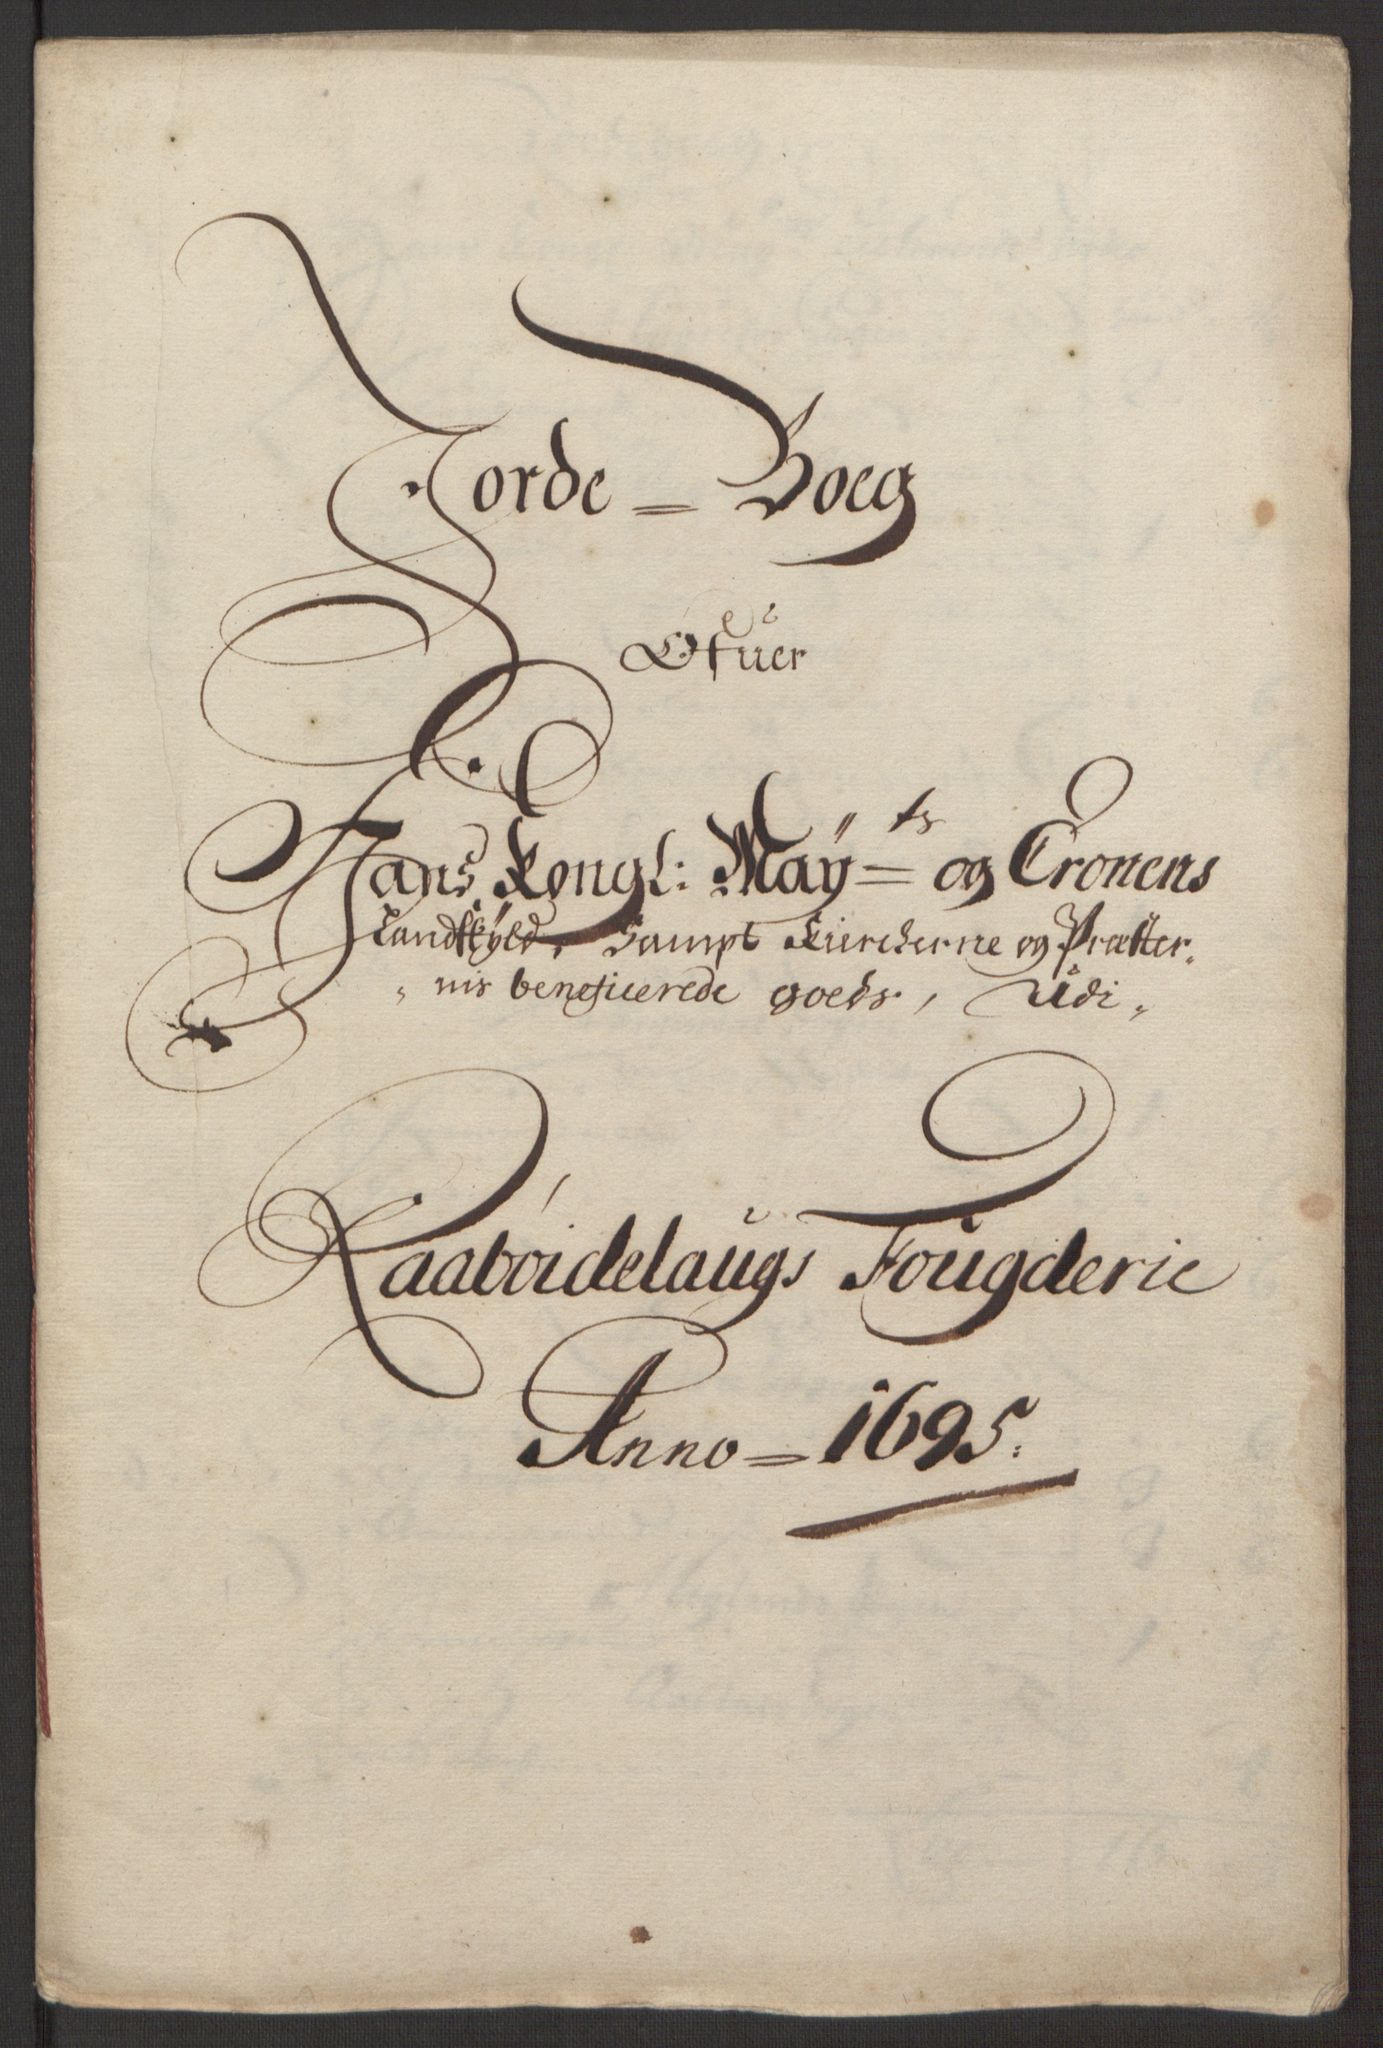 Jorde = Boeg
Ofuer
Hans Kongl: Maÿ=ts og Cronens
Landskÿld, Sampt Kircherne og Præster„
„nis beneficerede goeds, Udi„
Raabøidelaugs Fougderie
Anno = 1695.